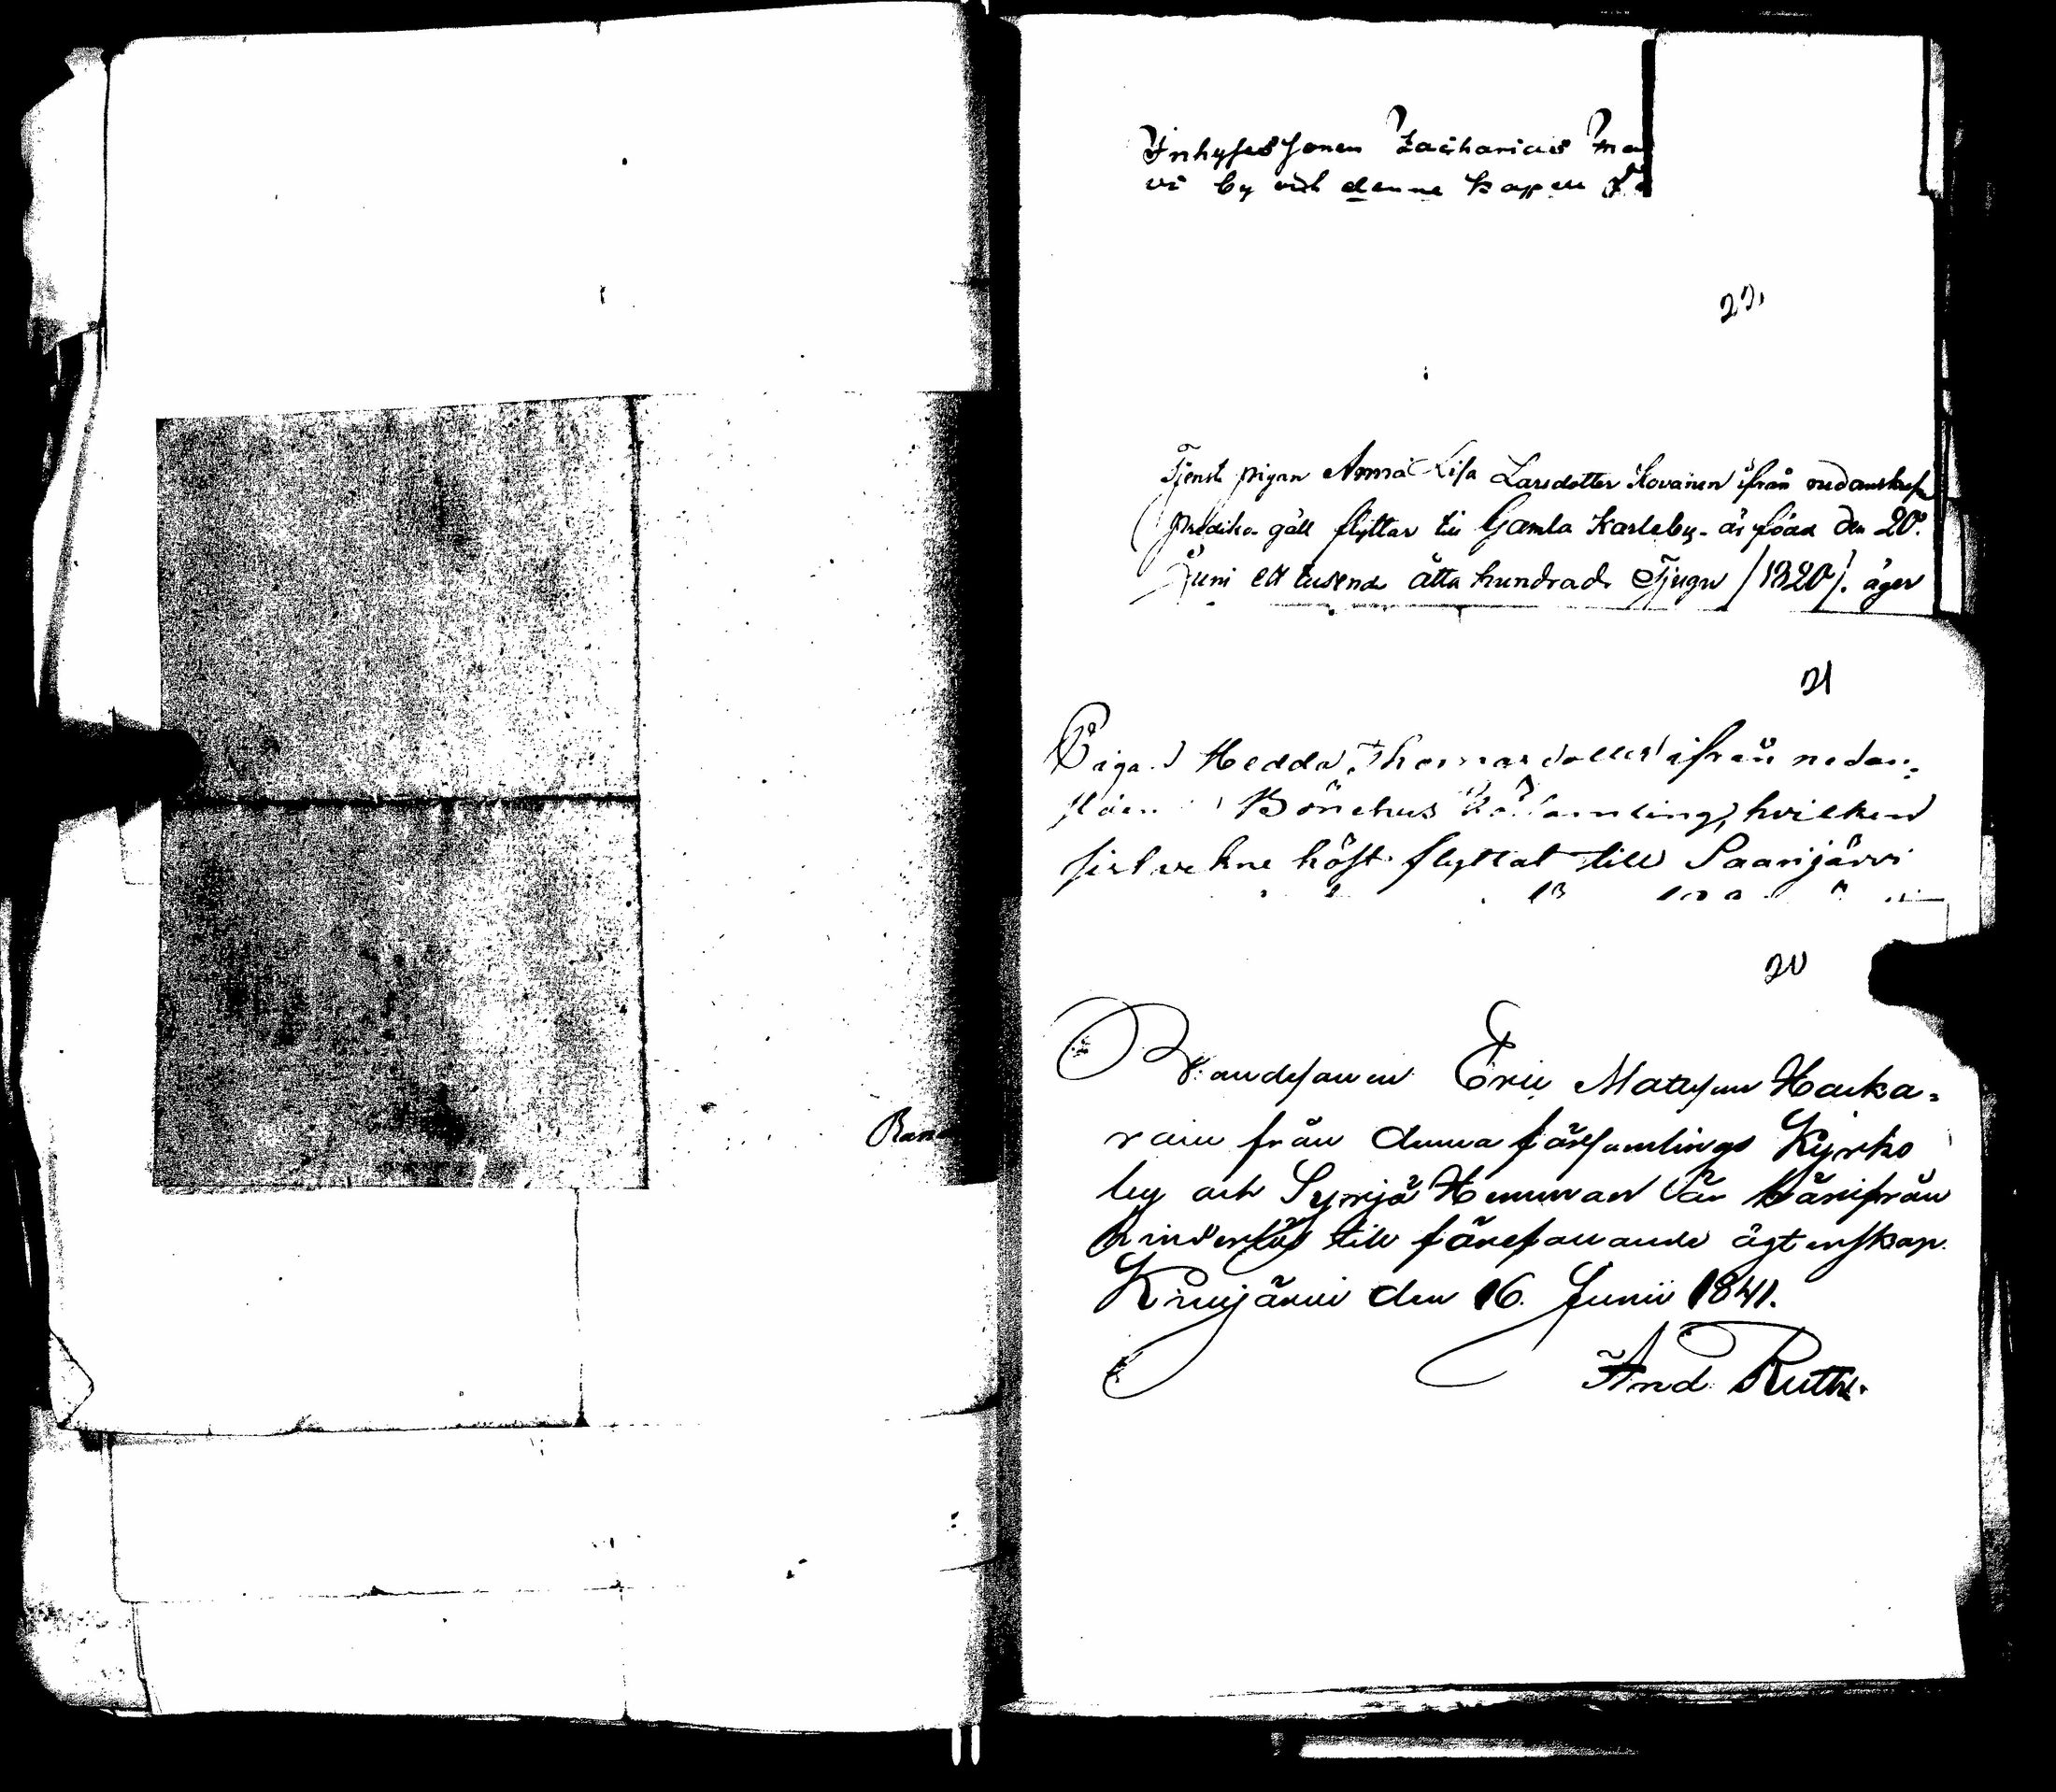 Ran
Inhyses Sonen Zacharias Ma
vi by uti denne kapell
22.
Tjenst pigan Anna Lisa Larsdotter Kovanen ifrån nedanskrefn
prediko gäll flyttar till Gamla Karleby. är född den 20de
Juni ett tusend åtta hundrade Tjugu /1820/. äger
21
Pigan Hedda Thomasdotter ifrån nedan-
Bönehus församling, hvilken
sistvekne höst flyttat till Saarijärvi
20
Bondesonen Eric Matsson Harka-
rain från denna församlings Kyrko
by och Syrjä Hemman är härifrån
hinderlös till förefallande ägtenskap.
Kivijärvi den 16. Junii 1841.
And. Ruth.